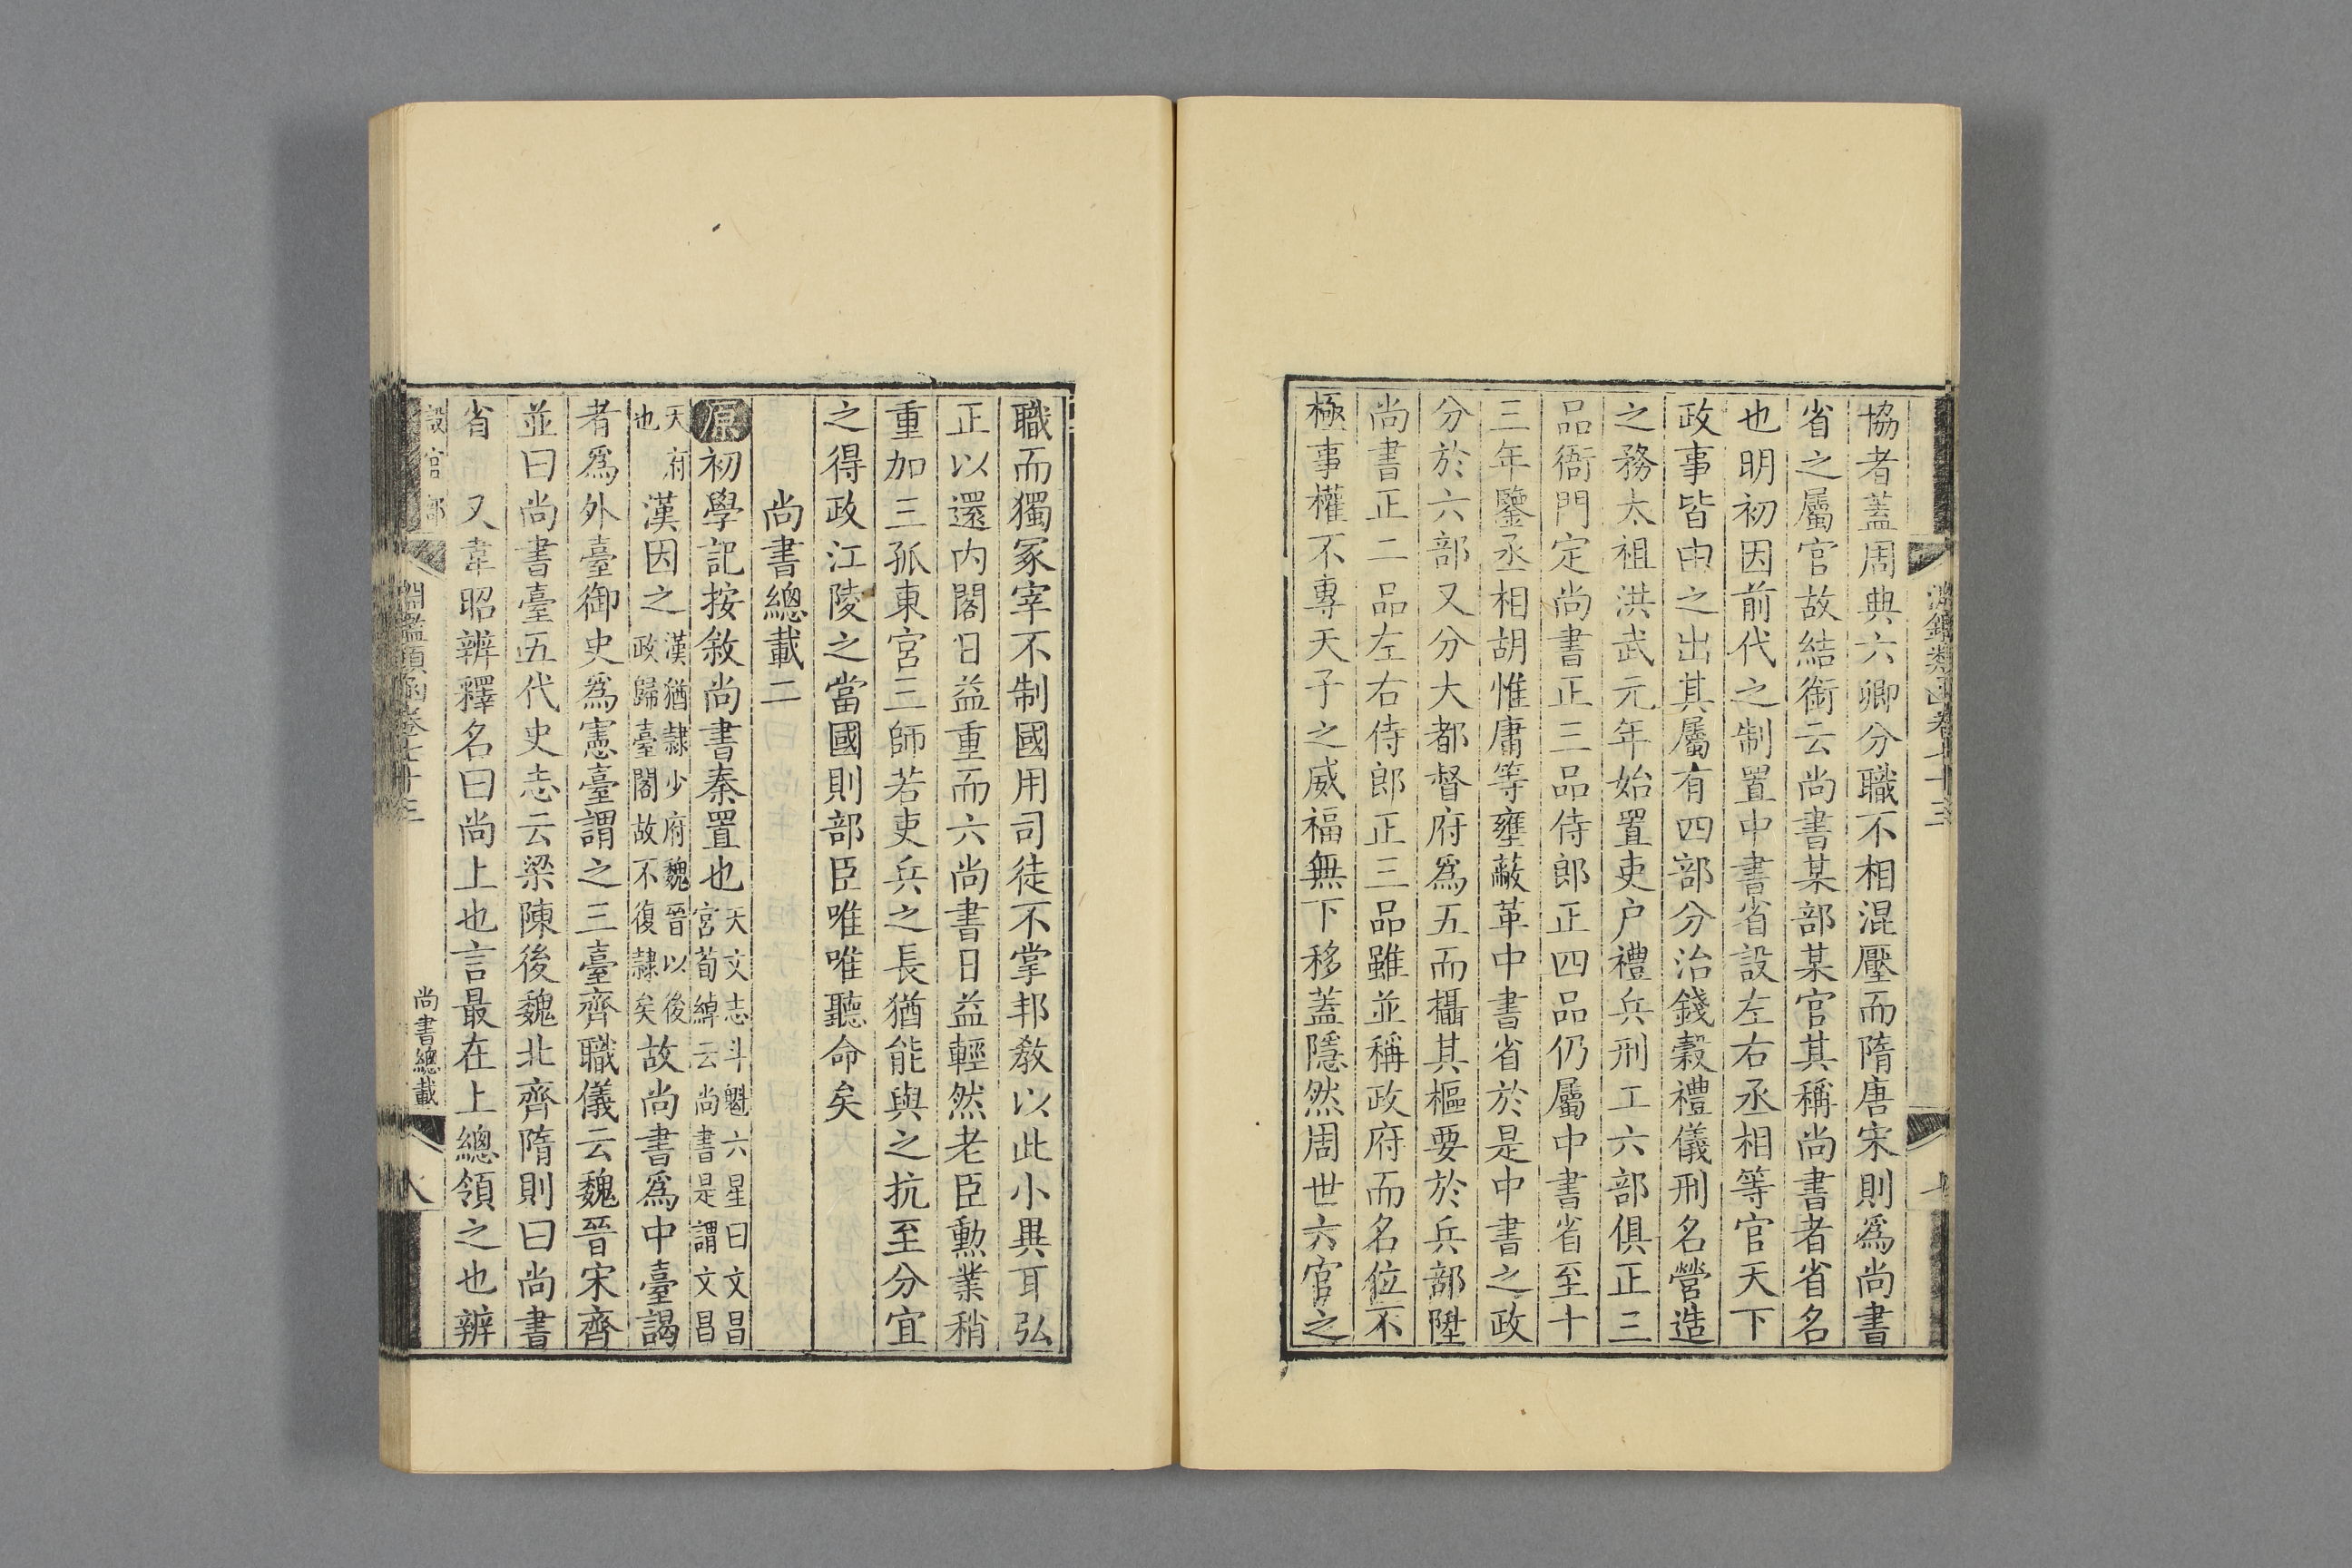 協者蓋周典六卿分職不相混壓而隋唐宋則爲尚書
省之屬官故結銜云尚書某部某官其稱尚書者省名
也明初因前代之制置中書省設左右丞相等官天下
政事皆由之出其屬有四部分治錢穀禮儀刑名營造
之務太祖洪武元年始置吏户禮兵刑工六部俱正三
品衙門定尚書正三品侍郎正四品仍屬中書省至十
三年鑒丞相胡惟庸等壅蔽革中書省於是中書之政
分於六部又分大都督府爲五而攝其樞要於兵部陞
尚書正二品左右侍郎正三品雖並稱政府而名位不
極事權不專天子之威福無下移蓋隱然周世六官之
職而獨冢宰不制國用司徒不掌邦教以此小異耳弘
正以還内閣日益重而六尚書日益輕然老臣勲業稍
重加三孤東宫三師若吏兵之長猶能與之抗至分宜
之得政江陵之當國則部臣唯唯聽命矣
尚書總載二
原初學記按敘尚書秦置也天文志斗魁六星曰文昌宫荀綽云尚書是謂文昌
天府也漢因之漢猶隷少府魏晉以後政歸臺閣故不復隷矣故尚書爲中臺謁
者爲外臺御史爲憲臺謂之三臺齊職儀云魏晉宋齊
並曰尚書臺五代史志云梁陳後魏北齊隋則曰尚書
省 又韋昭辨釋名曰尚上也言最在上總領之也辨
設官部 淵鑑類函卷七十三 尚書總載 八